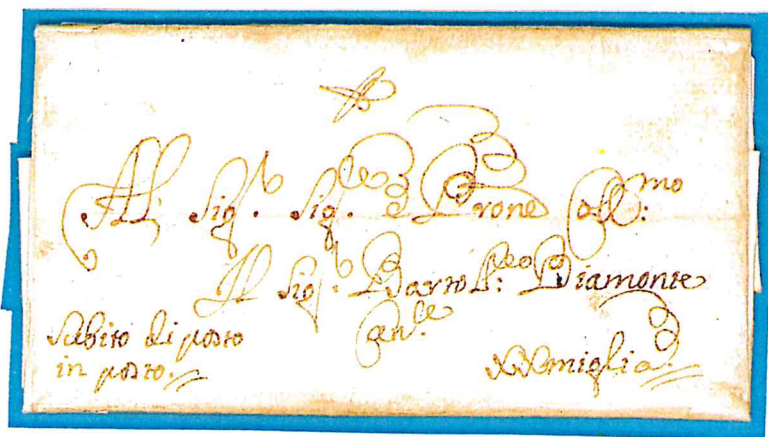 All Sig.r Sig.r e Prone oss.mo
Il Sig.r Bartol.eo Diamonte
Can.lle
Subito di posto
in posto.
XXmiglia